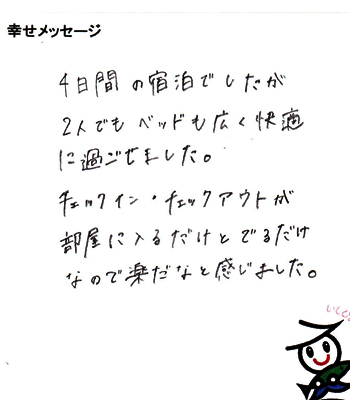 幸せメッセージ
4日間の宿泊でしたが
2人でもベッドも広く快適
に過ごせました。
チェックイン・チェックアウトが
部屋に入るだけとでるだけ
なので楽だなと感じました。